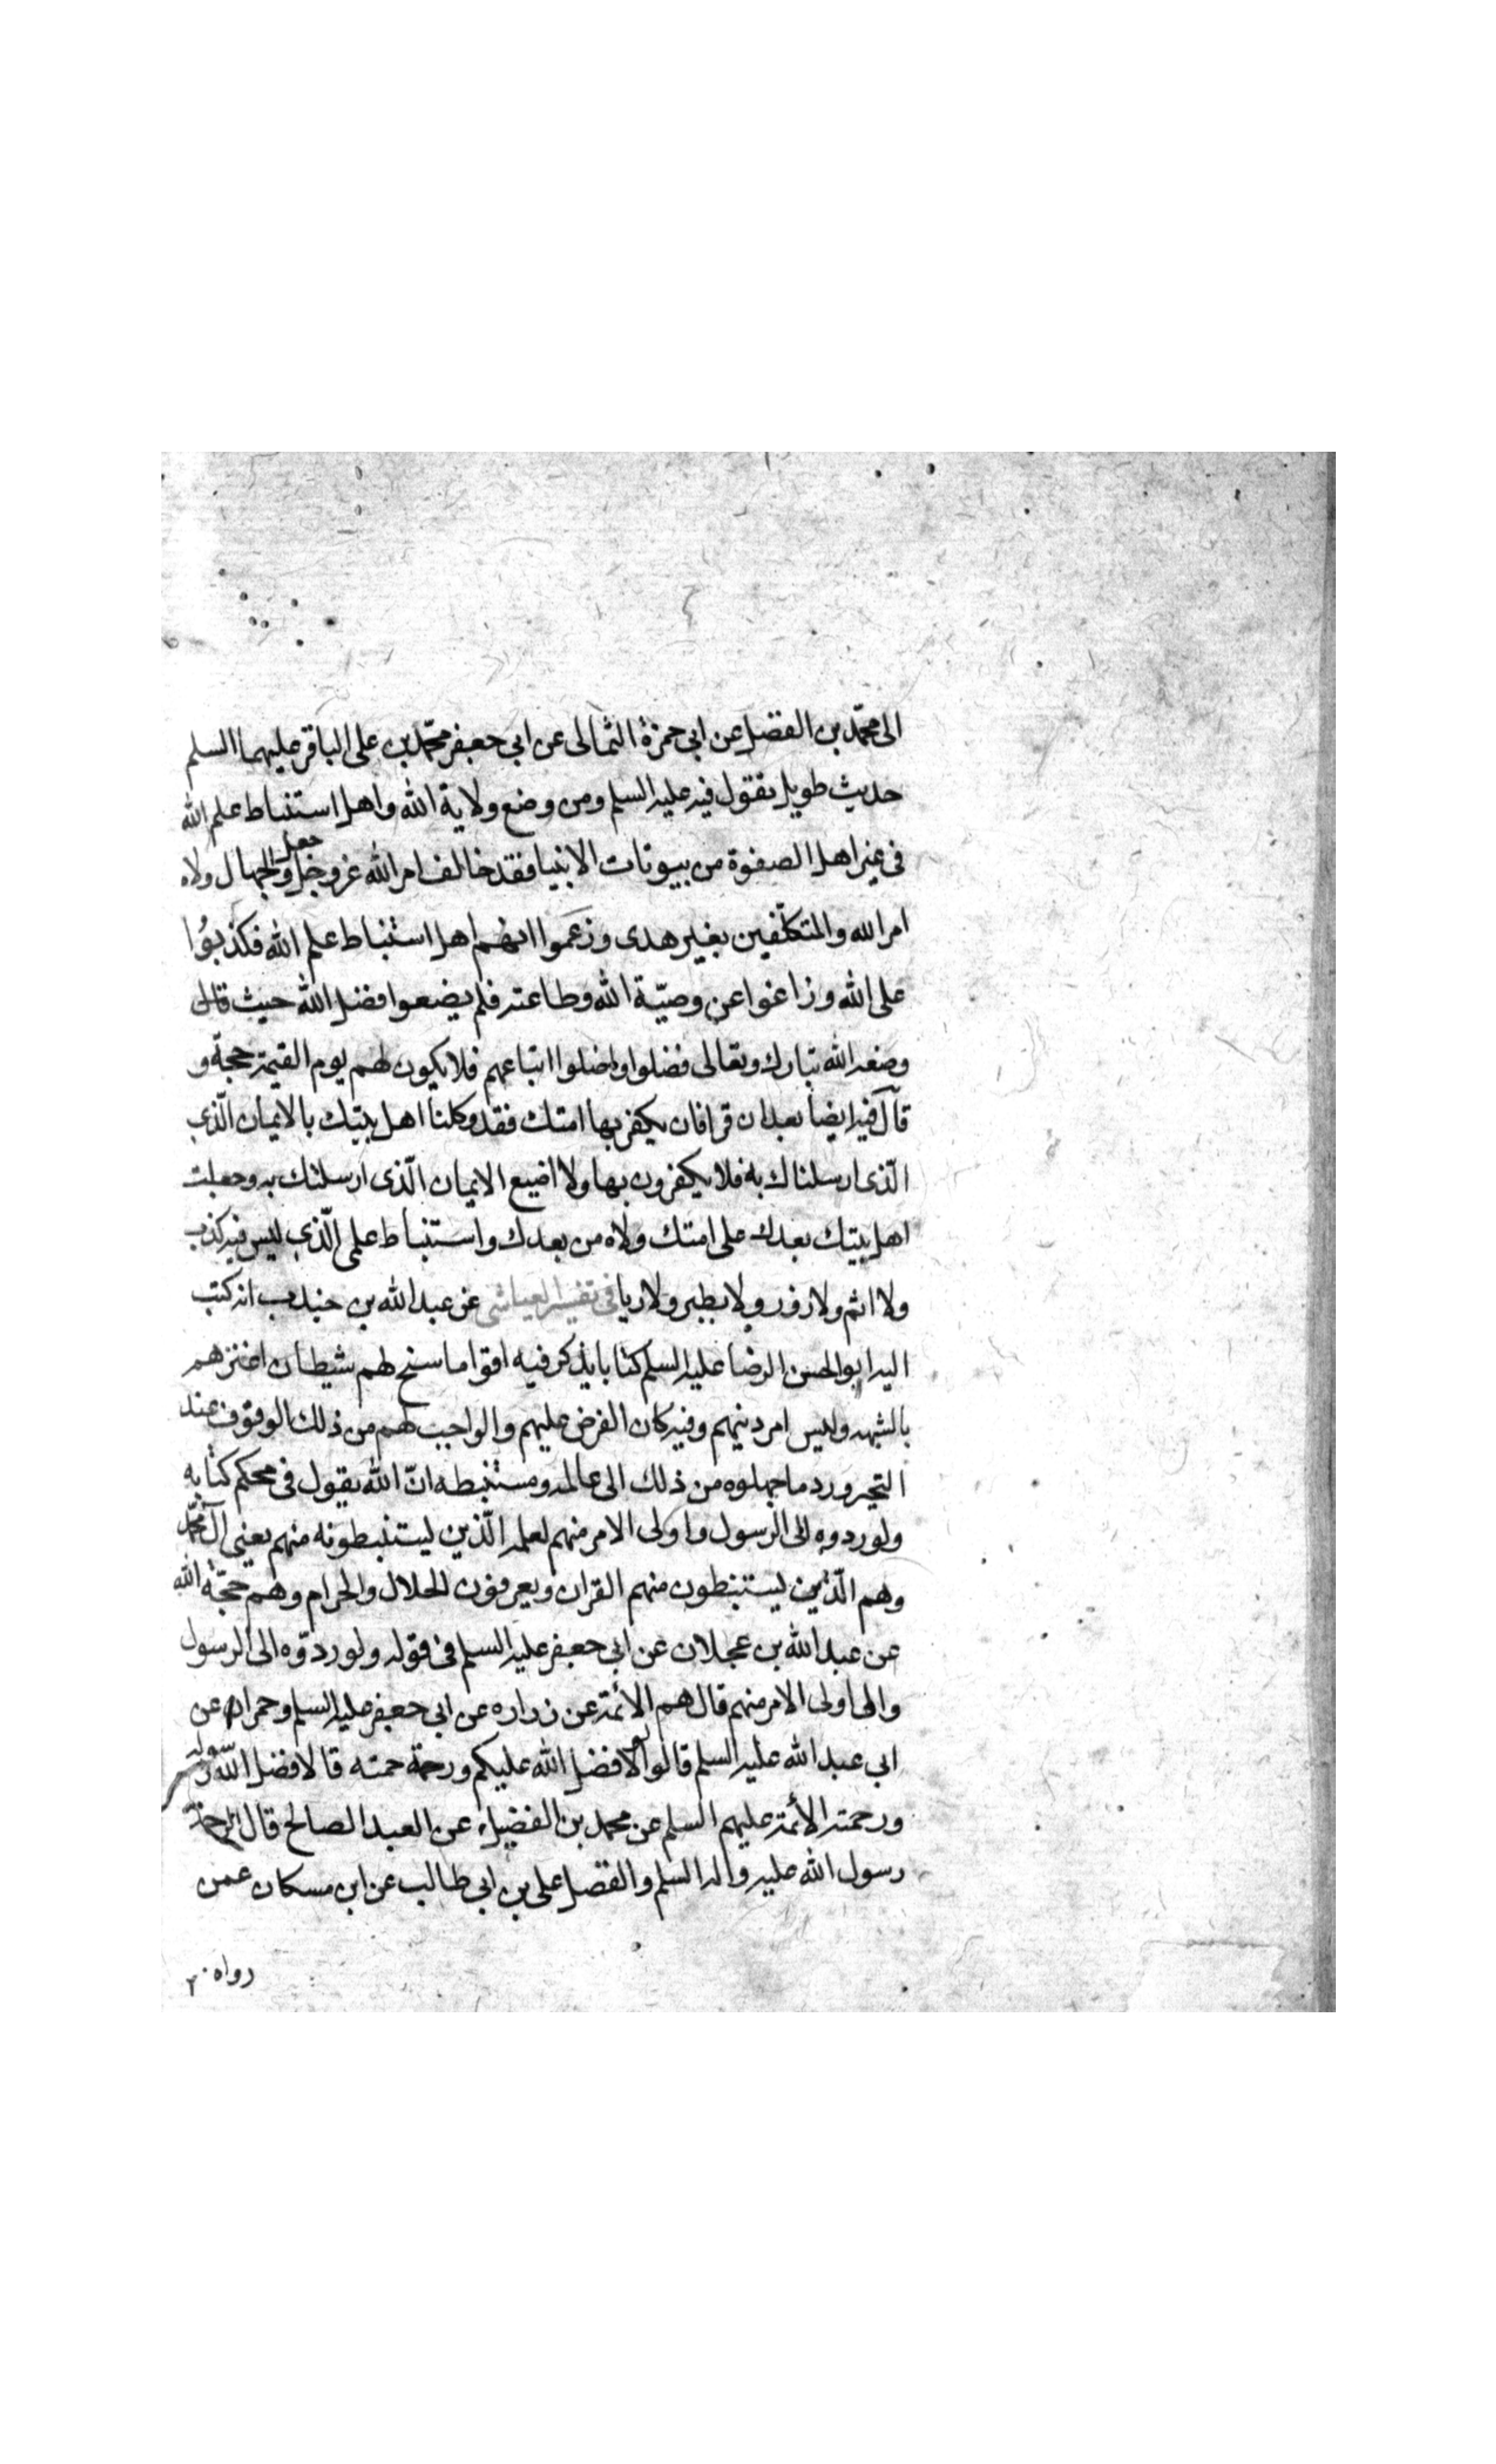 الى محمّد بن الفضل عن ابى حمزة الثمالى عن ابى جعفر محمّد بن على الباقر عليهما السلم
حديث طويل يقول فيه عليه السلم ومن وضع ولاية الله واهل استنباط علم الله
فى غير اهل الصفوة من بيوتات الانبيا فقد خالف امر الله عز وجل وجعل الجهال ولاه
امر الله والمتكلّفين بغير هدى وزعموا انهم اهل استنباط علم الله فكذبوا
على الله وزاغوا عن وصيّة الله وطاعته فلم يضعوا فضل الله حيث قال
وضعه الله تبارك وتعالى فضلوا واضلوا اتباعهم فلا يكون لهم يوم القيمة حجة و
قال فيه ايضا بعد ان قرا فان يكفر بها امتك فقد وكلنا اهل بيتك بالايمان الّذى
الّذى ارسلناك به فلا يكفرون بها ولا اضيع الايمان الّذى ارسلتك به وجعلت
اهل بيتك بعدك على امتك ولاه من بعدك واستنباط علمى الّذى ليس فيه كذب
ولا اثم ولا زور ولا بطر ولا ريا فى تفسير العياشى عن عبد الله بن جندب انه كتب
اليه ابو الحسن الرضا عليه السلم كتابا يذكر فيه اقواما سنح لهم شيطان اغترهم
بالشبهه ولبس امر دينهم وفيه كان الفرض عليهم والواجب لهم من ذلك الوقوف عند
التحير ورد ما جهلوه من ذلك الى عالمه ومستنبطه انّ الله يقول فى محكم كتابه
ولو ردوه الى الرسول واولى الامر منهم لعلمه الّذين يستنبطونه منهم يعنى آل محمّد
وهم الّذين يستنبطون منهم القران ويعرفون الحلال والحرام وهم حجّة الله
عن عبد الله بن عجلان عن ابى جعفر عليه السلم فى قوله ولو ردّوه الى الرسول
والى اولى الامر منهم قال هم الائمة عن زراره عن ابى جعفر عليه السلم وحمران عن
ابى عبد الله عليه السلم قالوا لو لا فضل الله عليكم ورحمة حمته قالا فضل الله رسوله
ورحمته الأئمة عليهم السلم عن محمد بن الفضيل عن العبد الصالح قال الرحمة
رسول الله عليه واله السلم والفضل على بن ابى طالب عن ابن مسكان عمن
رواه